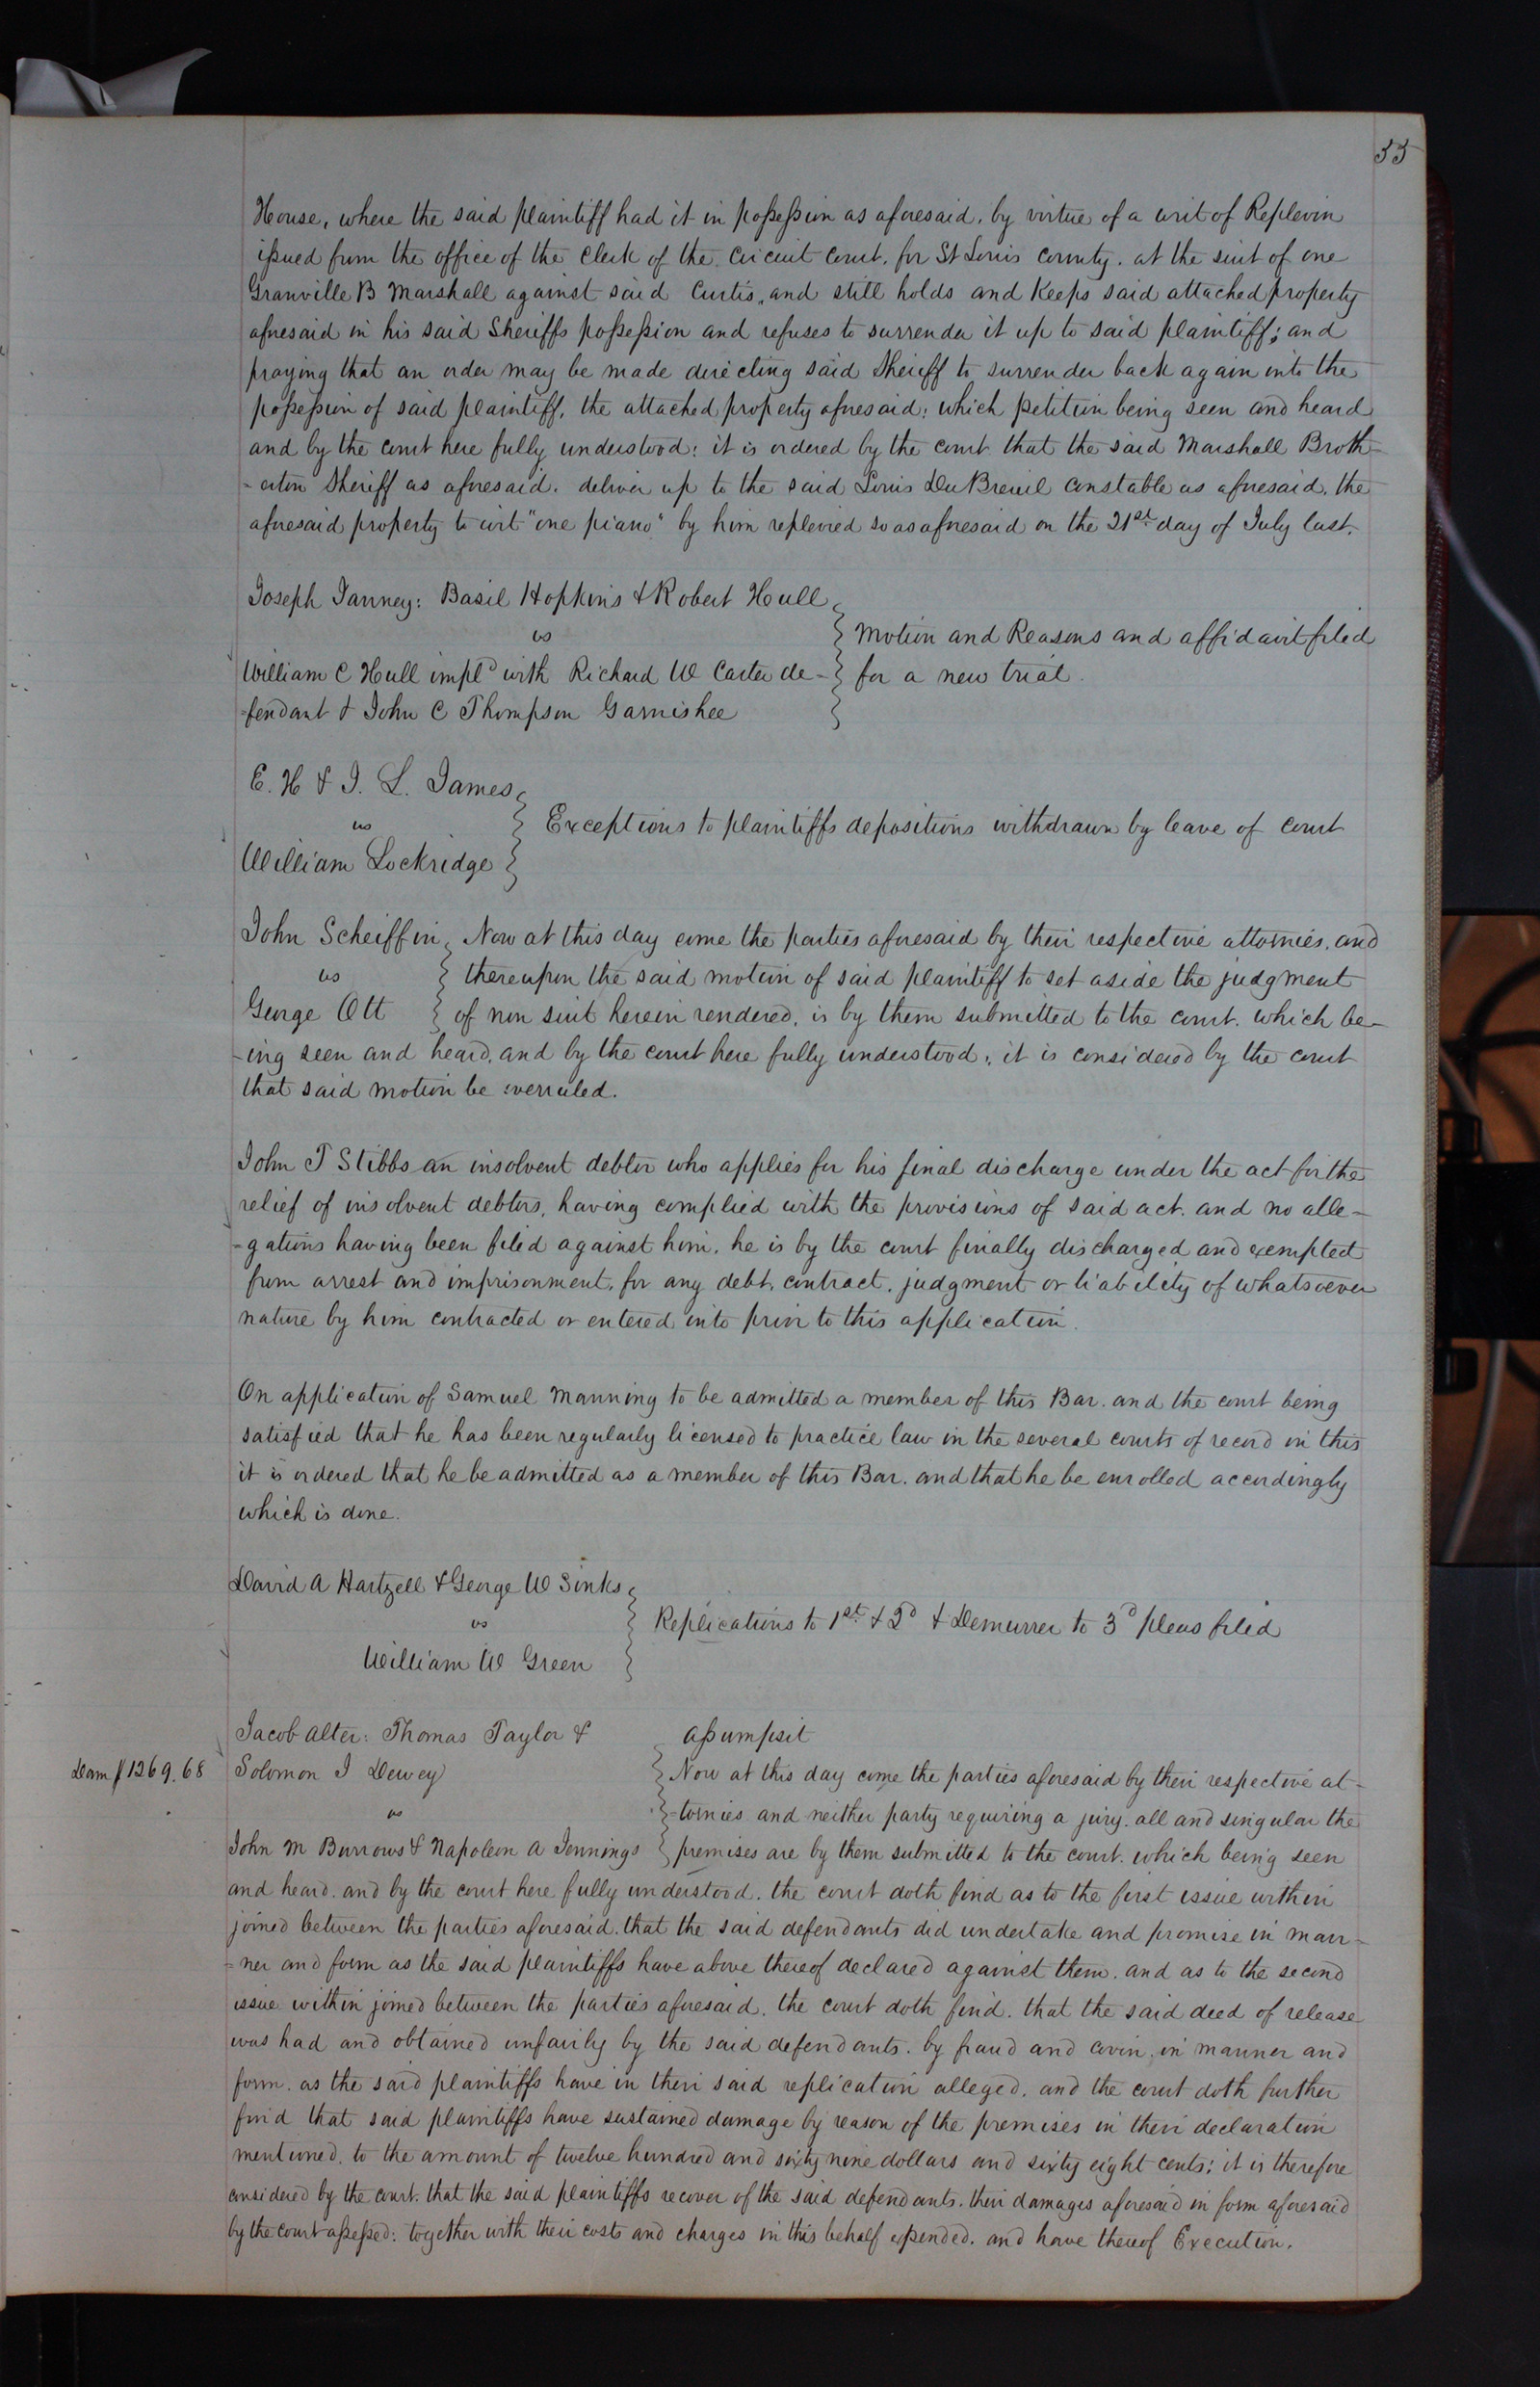 33
House, where the said plaintiff had it in possession as aforesaid, by virtue of a writ of Replevin
issued from the office of the Clerk of the Circuit Court, for St Louis County. at the suit of one
Granville B Marshall against said Curtis, and still holds and Keeps said attached property
aforesaid in his said Sheriffs possession and refuses to surrender it up to said plaintiff; and
praying that an order may be made directing said Sheriff to surrender back again into the
possession of said plaintiff, the attached property aforesaid: which petition being seen and heard
and by the court here fully understood: it is ordered by the court that the said Marshall Broth-
-erton Sheriff as aforesaid. deliver up to the said Louis DuBreuil Constable as aforesaid. the
aforesaid property to wit "one piano" by him replevied so as aforesaid on the 21st day of July last.
Joseph Tanney: Basil Hopkins & Robert Hull
vs
William C Hull impld with Richard W Carter de-
-fendant & John C Thompson Garnishee
Motion and Reasons and affidavit filed
for a new trial.
E. H & I. L. James
vs
William Lockridge
Exceptions to plaintiffs depositions withdrawn by leave of court
John Scheiffin
vs
George Ott
Now at this day come the parties aforesaid by their respective attornies. and
thereupon the said motion of said plaintiff to set aside the judgment
of non suit herein rendered, is by them submitted to the court. which be-
-ing seen and heard, and by the court here fully understood; it is considered by the court
that said motion be overruled.
John T Stibbs an insolvent debtor who applies for his final discharge under the act for the
relief of insolvent debtors, having complied with the provisions of said act. and no alle-
-gations having been filed against him. he is by the court finally discharged and exempted
from arrest and imprisonment, for any debt, contract, judgment or liability of whatsoever
nature by him contracted or entered into prior to this application.
On application of Samuel Manning to be admitted a member of this Bar. and the court being
satisfied that he has been regularly licensed to practice law in the several courts of record in this
it is ordered that he be admitted as a member of this Bar. and that he be enrolled accordingly
which is done.
David A Hartzell & George W Sinks
vs
William W Green
Replications to 1st & 2d & Demurrer to 3d pleas filed
Dam $1269.68
Jacob Alter: Thomas Taylor &
Solomon I Dewey
vs
John M Burrows & Napoleon A Jennings
Assumpsit
Now at this day come the parties aforesaid by their respective at-
-tornies and neither party requiring a jury. all and singular the
premises are by them submitted to the court. which being seen
and heard. and by the court here fully understood. the court doth find as to the first issue within
joined between the parties aforesaid. that the said defendants did undertake and promise in man-
-ner and form as the said plaintiffs have above thereof declared against them. and as to the second
issue within joined between the parties aforesaid. the court doth find. that the said deed of release
was had and obtained unfairly by the said defendants. by fraud and covin. in manner and
form. as the said plaintiffs have in their said replication alleged. and the court doth further
find that said plaintiffs have sustained damage by reason of the premises in their declaration
mentioned. to the amount of twelve hundred and sixty nine dollars and sixty eight cents; it is therefore
considered by the court. that the said plaintiffs recover of the said defendants. their damages aforesaid in form aforesaid
by the court assessed: together with their costs and charges in this behalf expended. and have thereof Execution.